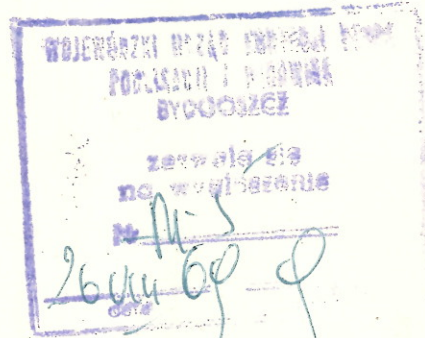 WOJEWÓDZKI URZĄD KONTROLI PRASY
PUBLIKACJI I WIDOWISK
BYDGOSZCZ
zezwala się
na
Nr
26 VIII 69
data